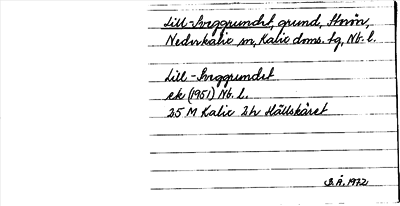 Lill-Sveggrundet, grund, Storön,
Nederkalix sn, Kalix doms. tg, Nb. l.
Lill-Sveggrundet
ek (1951) Nb. l.
25 M Kalix 2h Hällskäret
B.Å. 1972